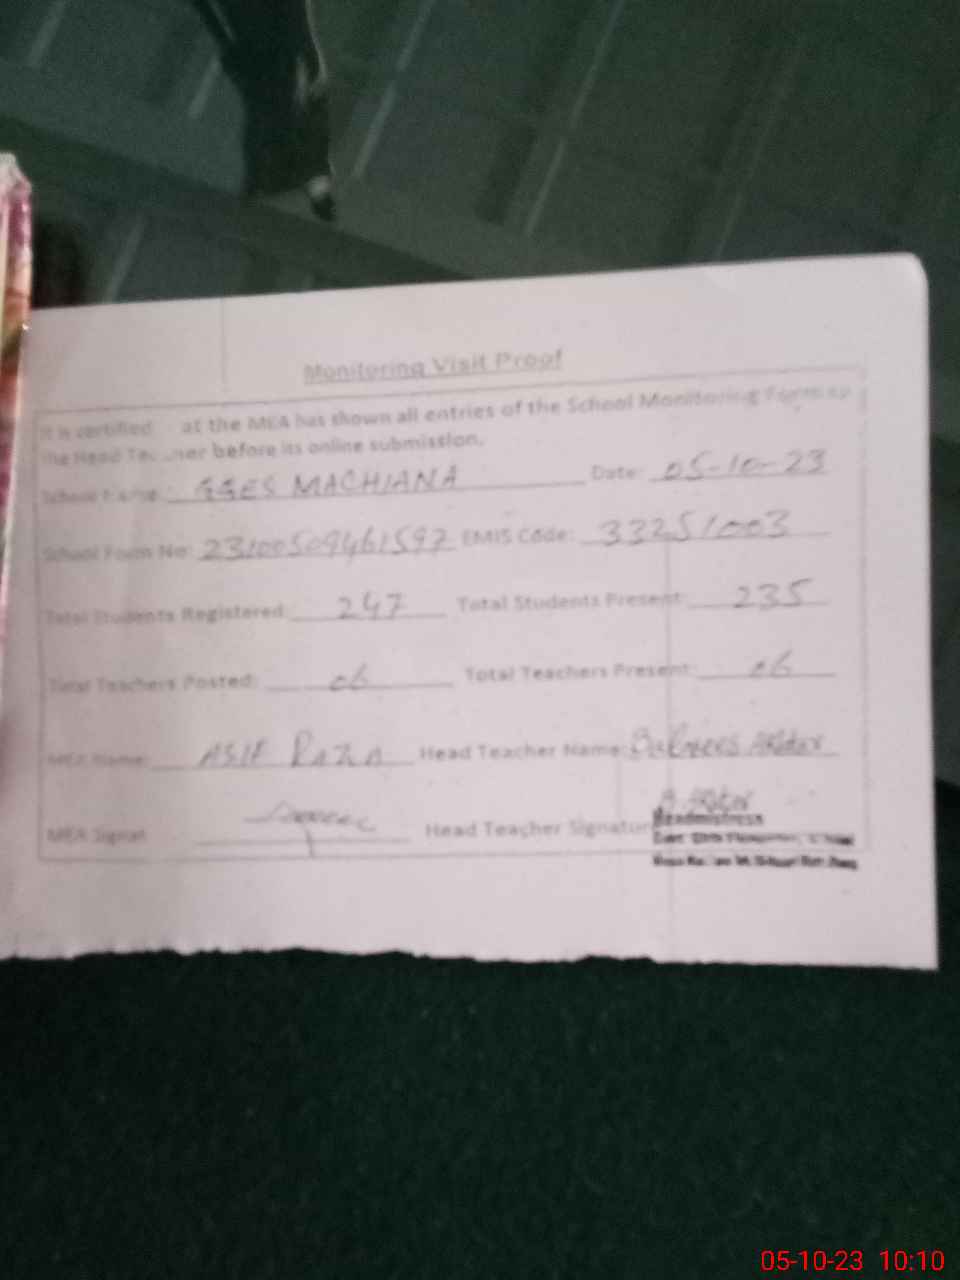 Monitoring Visit Proof
It is certified at the MEA has shown all entries of the School Monitoring Form to
the Head Teacher before its online submission.
School Name: GGES MACHIANA Date: 05-10-23
School Form No: 23100509461597 EMIS Code: 33251003
Total Students Registered: 247 Total Students Present: 235
Total Teachers Posted: 06 Total Teachers Present: 06
MEA Name: ASIF RAZA Head Teacher Name: Akhtar
MEA Signat Head Teacher Signature
Headmistress
05-10-23 10:10